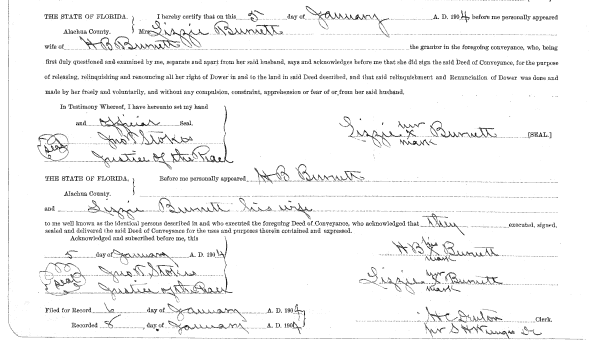 THE STATE OF FLORIDA. I hereby certify that on this 5 day of January A. D. 1904 before me personally appeared
Alachua County. Mrs Lizzie Burnett
wife of H B Burnett the grantor in the foregoing conveyance, who, being
first duly questioned and examined by me, separate and apart from her said husband, says and acknowledges before me that she did sign the said Deed of Conveyance, for the purpose
of releasing, relinquishing and renouncing all her right of Dower in and to the land in said Deed described, and that said relinquishment and Renunciation of Dower was done and
made by her freely and voluntarily, and without any compulsion, constraint, apprehension or fear of or from her said husband.
In Testimony Whereof, I have hereunto set my hand
and official Seal.
Lizzie her x mark Burnett [SEAL]
Seal Jno T Stokes
Justice of the Peace
THE STATE OF FLORIDA. Before me personally appeared H B Burnett
Alachua County.
and Lizzie Burnett his wife
to me well known as the identical persons described in and who executed the foregoing Deed of Conveyance, who acknowledged that they executed, signed,
sealed and delivered the said Deed of Conveyance for the uses and purposes therein contained and expressed.
Acknowledged and subscribed before me, this
5 day of January A. D. 1904
H B his x mark Burnett
Seal Jno T Stokes
Lizzie her x mark Burnett
Justice of the Peace
Filed for Record 6 day of January A. D. 1904
H C Clerk.
Recorded 8 day of January A. D. 1904